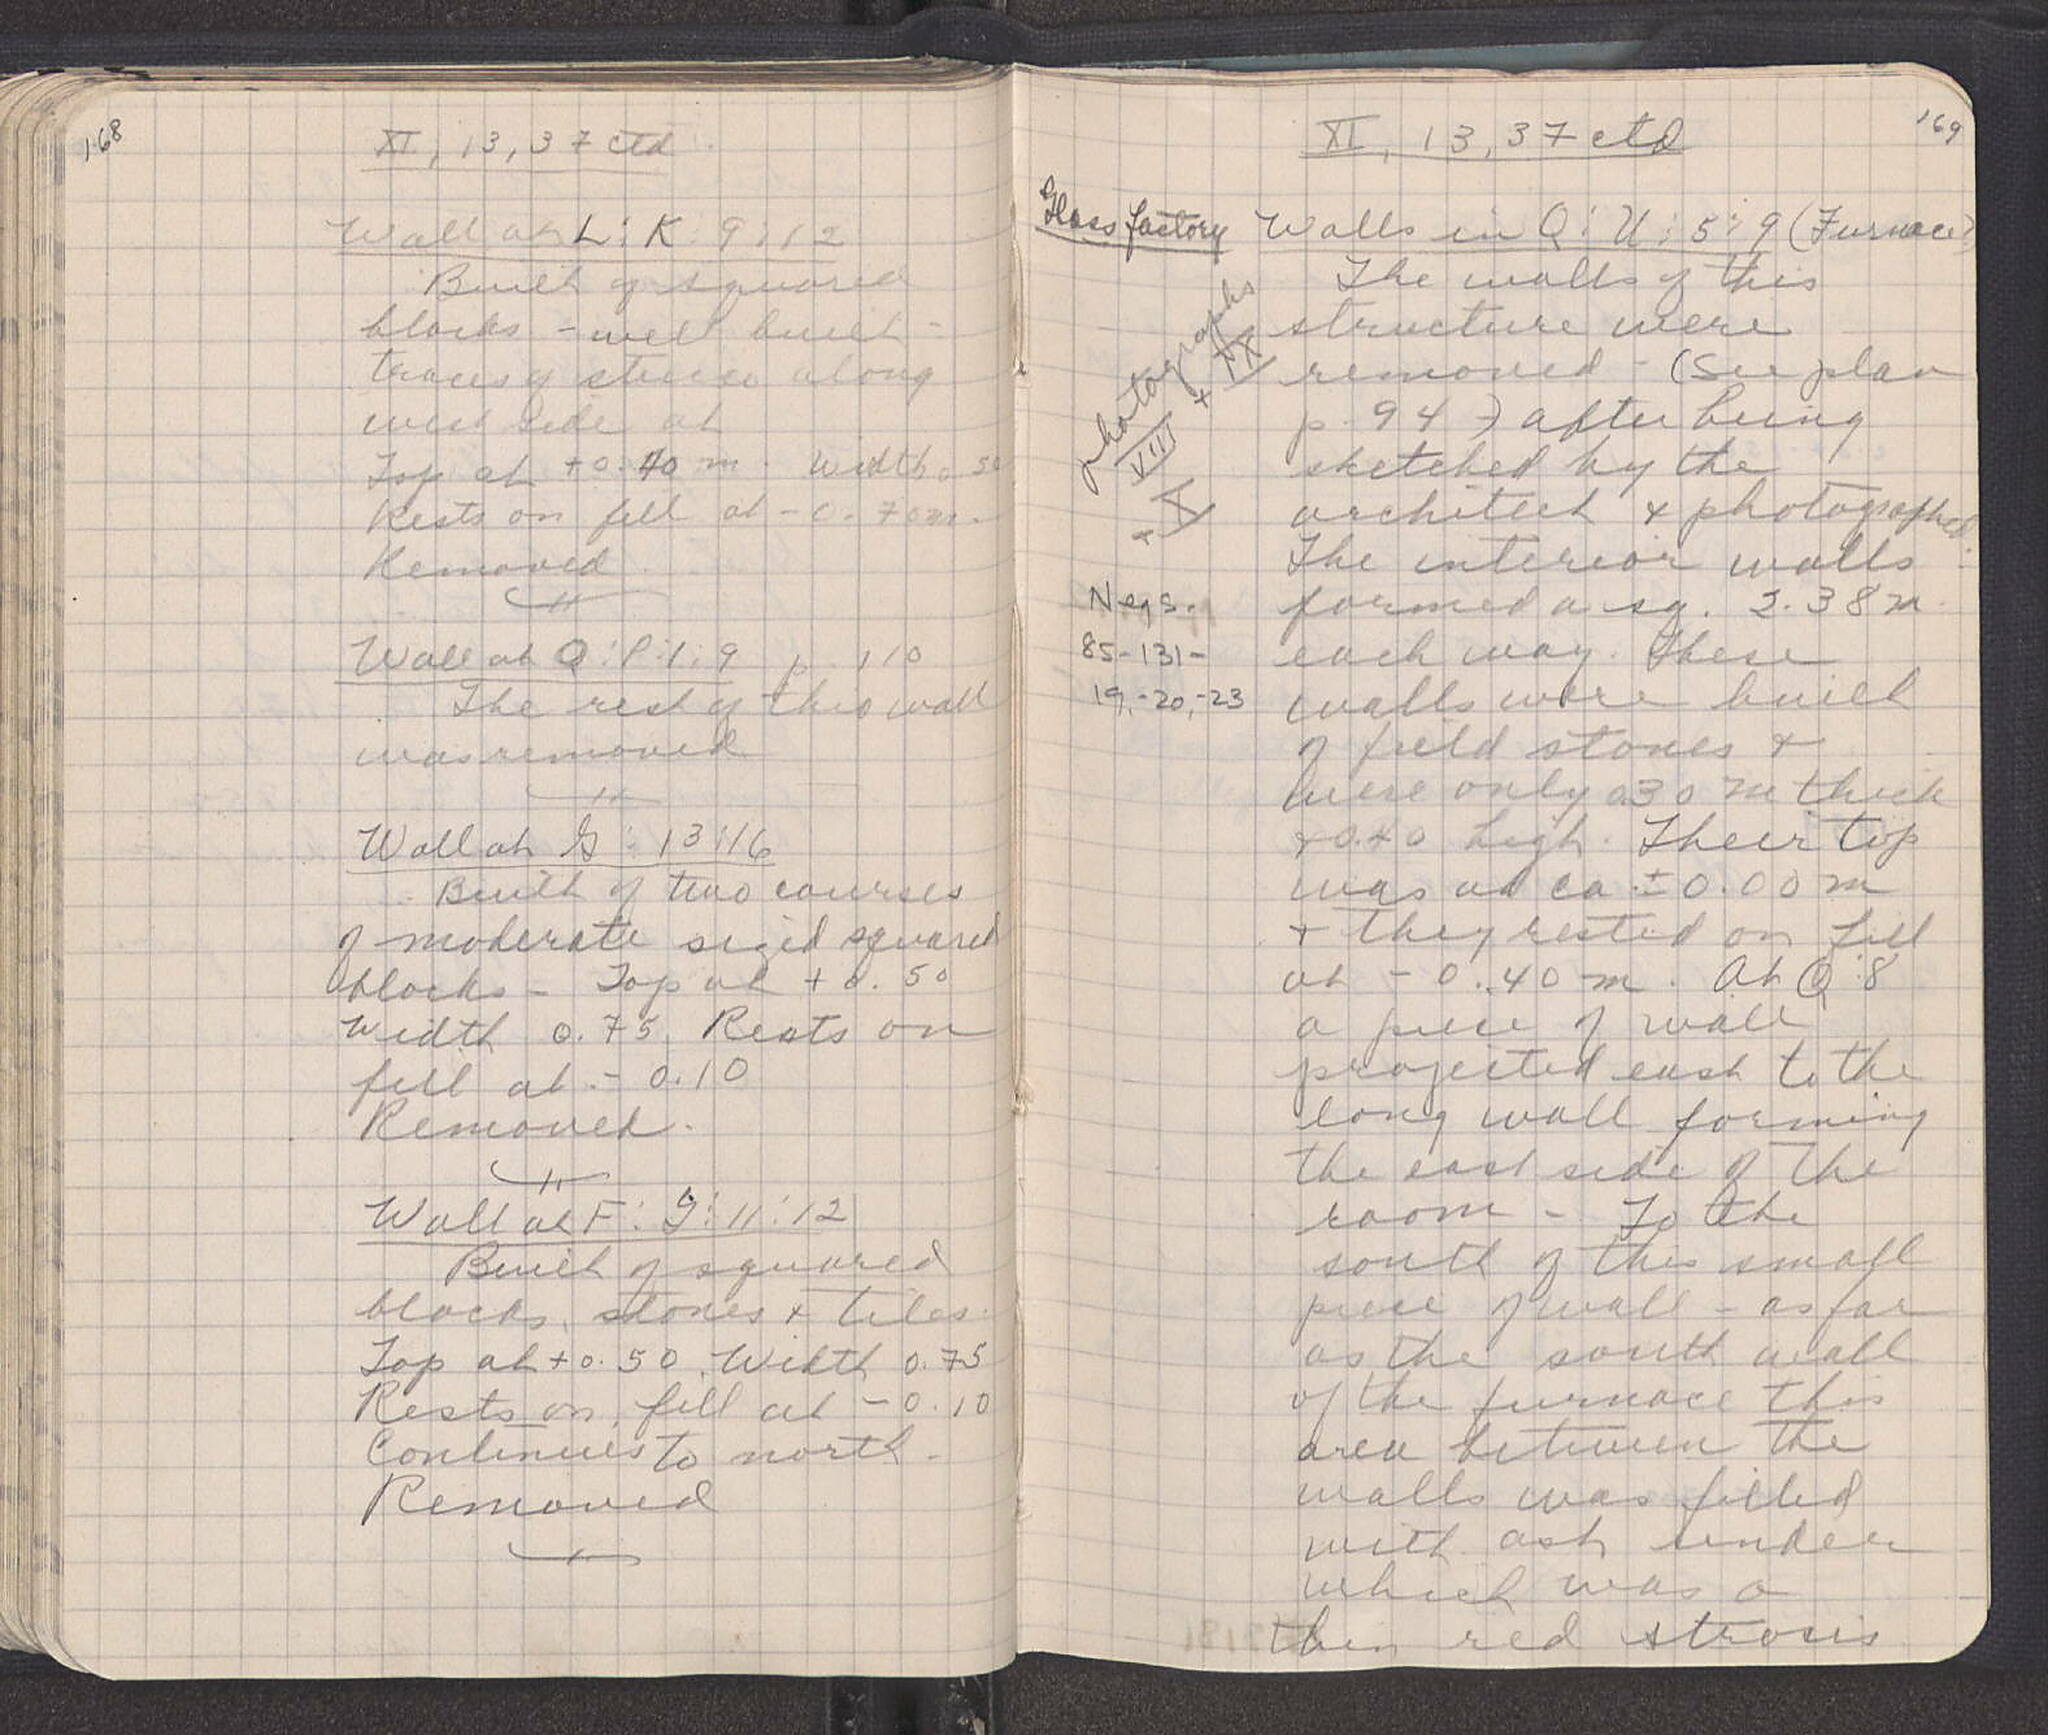 168
XI, 13, 37 ctd
Wall at L:K:9:12
Built of squared
blocks - well built -
traces of stucco along
west side at
Top at +0.40 m. Width 0.50
Rests on fill at -0.70m.
Removed
Wall at Q:P:1:9 p. 110
The rest of this wall
was removed
Wall at G:13:16
Built of two courses
of moderate sized squared
blocks - Top at +0.50
Width 0.75. Rests on
fill at -0.10
Removed.
Wall at F:G:11:12
Built of squared
blocks, stones + tiles.
Top at +0.50. Width 0.75
Rests on fill at -0.10
Continues to north -
Removed
169
XI, 13, 37 ctd
Glass factory
Walls in Q:U:5:9 (Furnace?)
The walls of this
structure were
removed - (See plan
p. 94) after being
sketched by the
architect + photographed.
The interior walls
formed a sq. 2.38m.
each way. These
walls were built
of field stones +
were only 0.30 m thick
+ 0.40 high. Their top
was at ca. ±0.00 m
+ they rested on fill
at -0.40 m. At Q:8
a piece of wall
projected east to the
long wall forming
the east side of the
room - To the
south of this small
piece of wall - as far
as the south wall
of the furnace this
area between the
walls was filled
with ash under
which was a
thin red strosis
photographs
VIII + IX
+ X
Negs.
85-131-
19,-20,-23